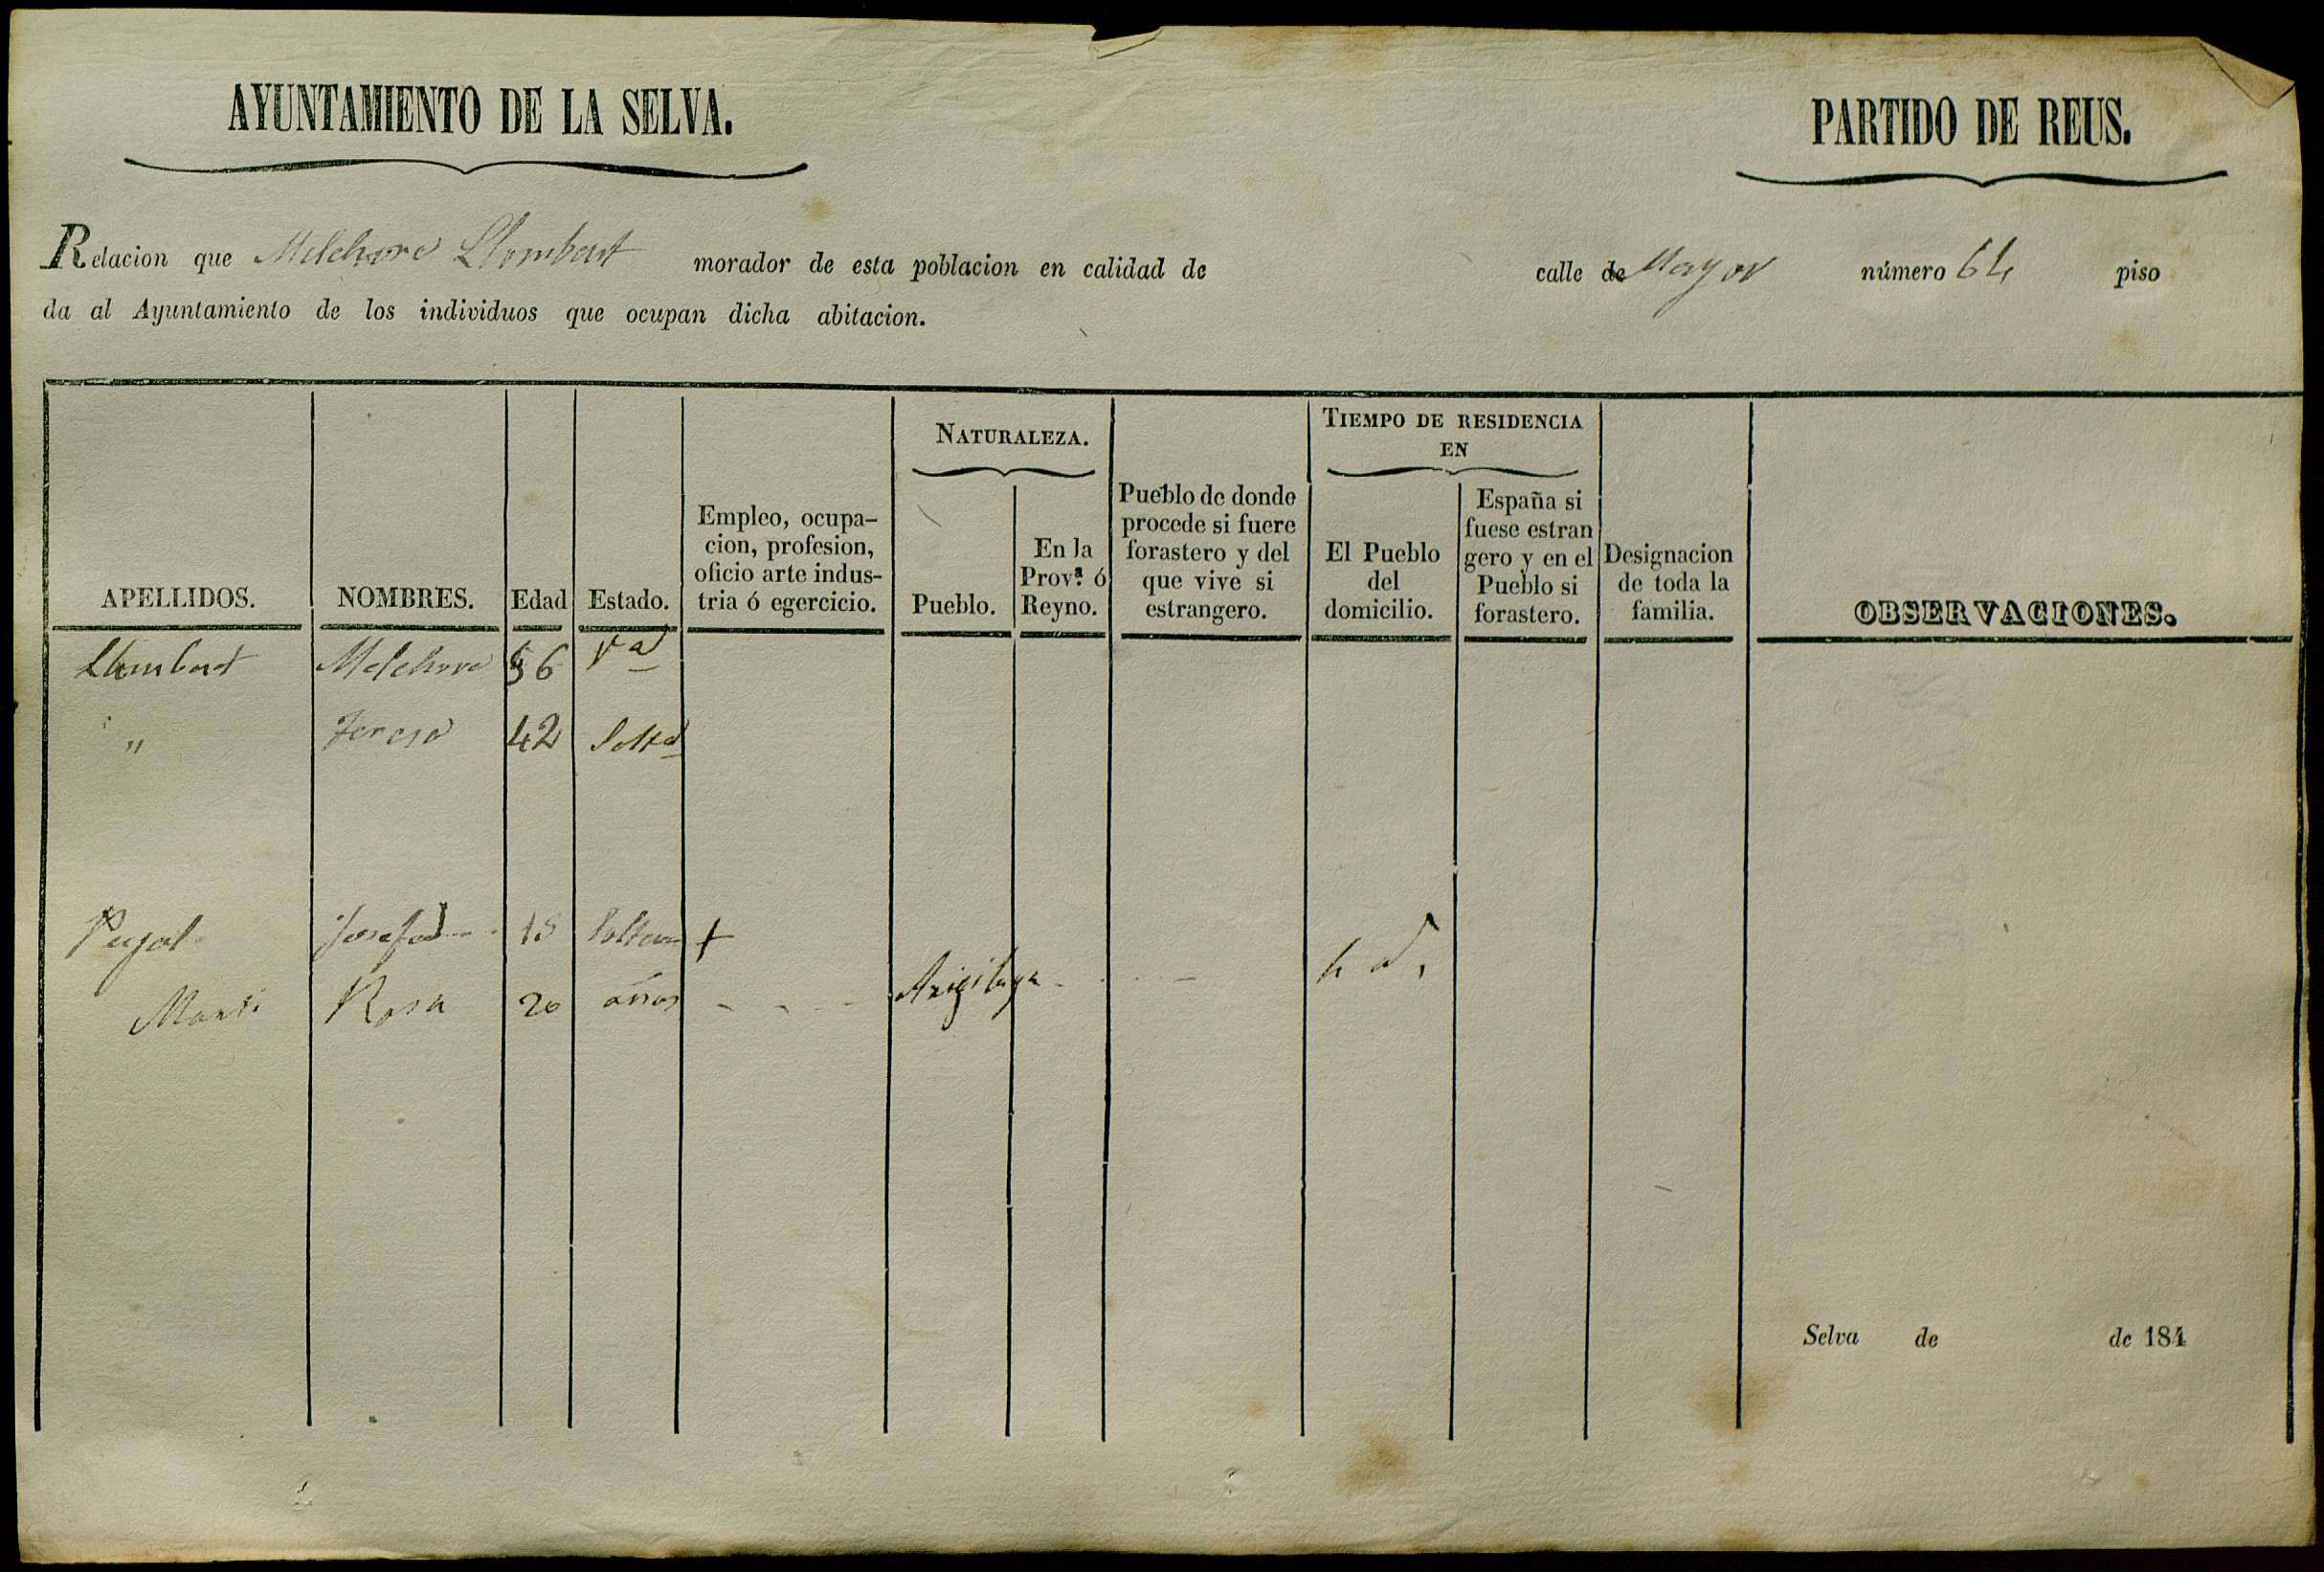 AYUNTAMIENTO DE LA SELVA.
PARTIDO DE REUS.
Relacion que Melchora Llombart morador de esta poblacion en calidad de calle de Mayor número 64 piso
da al Ayuntamiento de los individuos que ocupan dicha abitacion.
APELLIDOS.
NOMBRES.
Edad
Estado.
Empleo, ocupa-
cion, profesion,
oficio arte indus-
tria ó egercicio.
NATURALEZA.
Pueblo.
En la
Prov.ª ó
Reyno.
Pueblo de donde
procede si fuere
forastero y del
que vive si
estrangero.
TIEMPO DE RESIDENCIA
EN
El Pueblo
del
domicilio.
España si
fuese estran
gero y en el
Pueblo si
forastero.
Designacion
de toda la
familia.
OBSERVACIONES.
Llombart Melchora 56 Vª
" Teresa 42 Soltª
Pujol Josefa 18 Soltera +
Marti Rosa 20 años
Selva de de 184